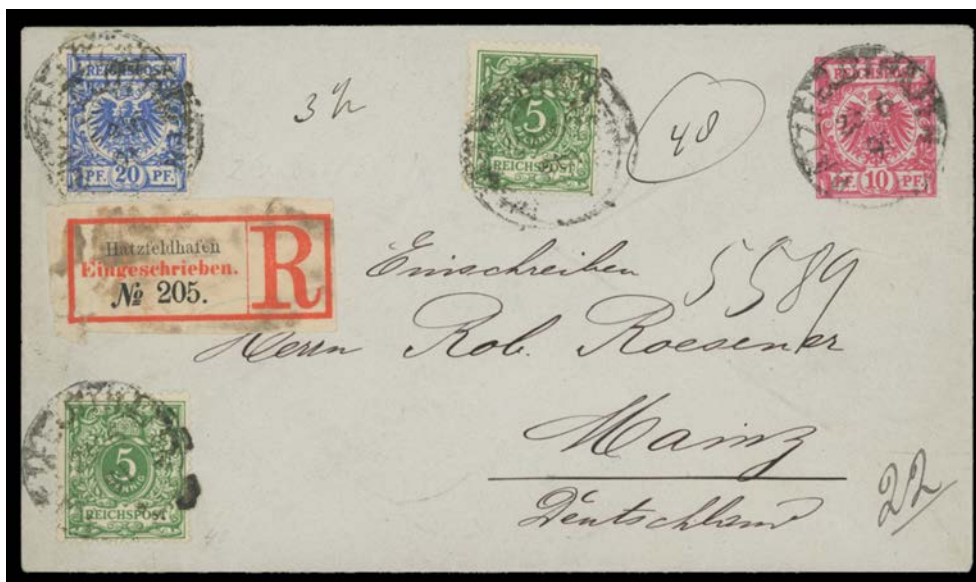 REICHSPOST
PF. 20 PF.
3½
5
PFENNIG
REICHSPOST
48
REICHSPOST
PF. 10 PF.
Hatzfeldhafen
Eingeschrieben.
№ 205.
R
Einschreiben 5589
Herrn Rob. Roesener
Mainz
Deutschland
22
5
PFENNIG
REICHSPOST